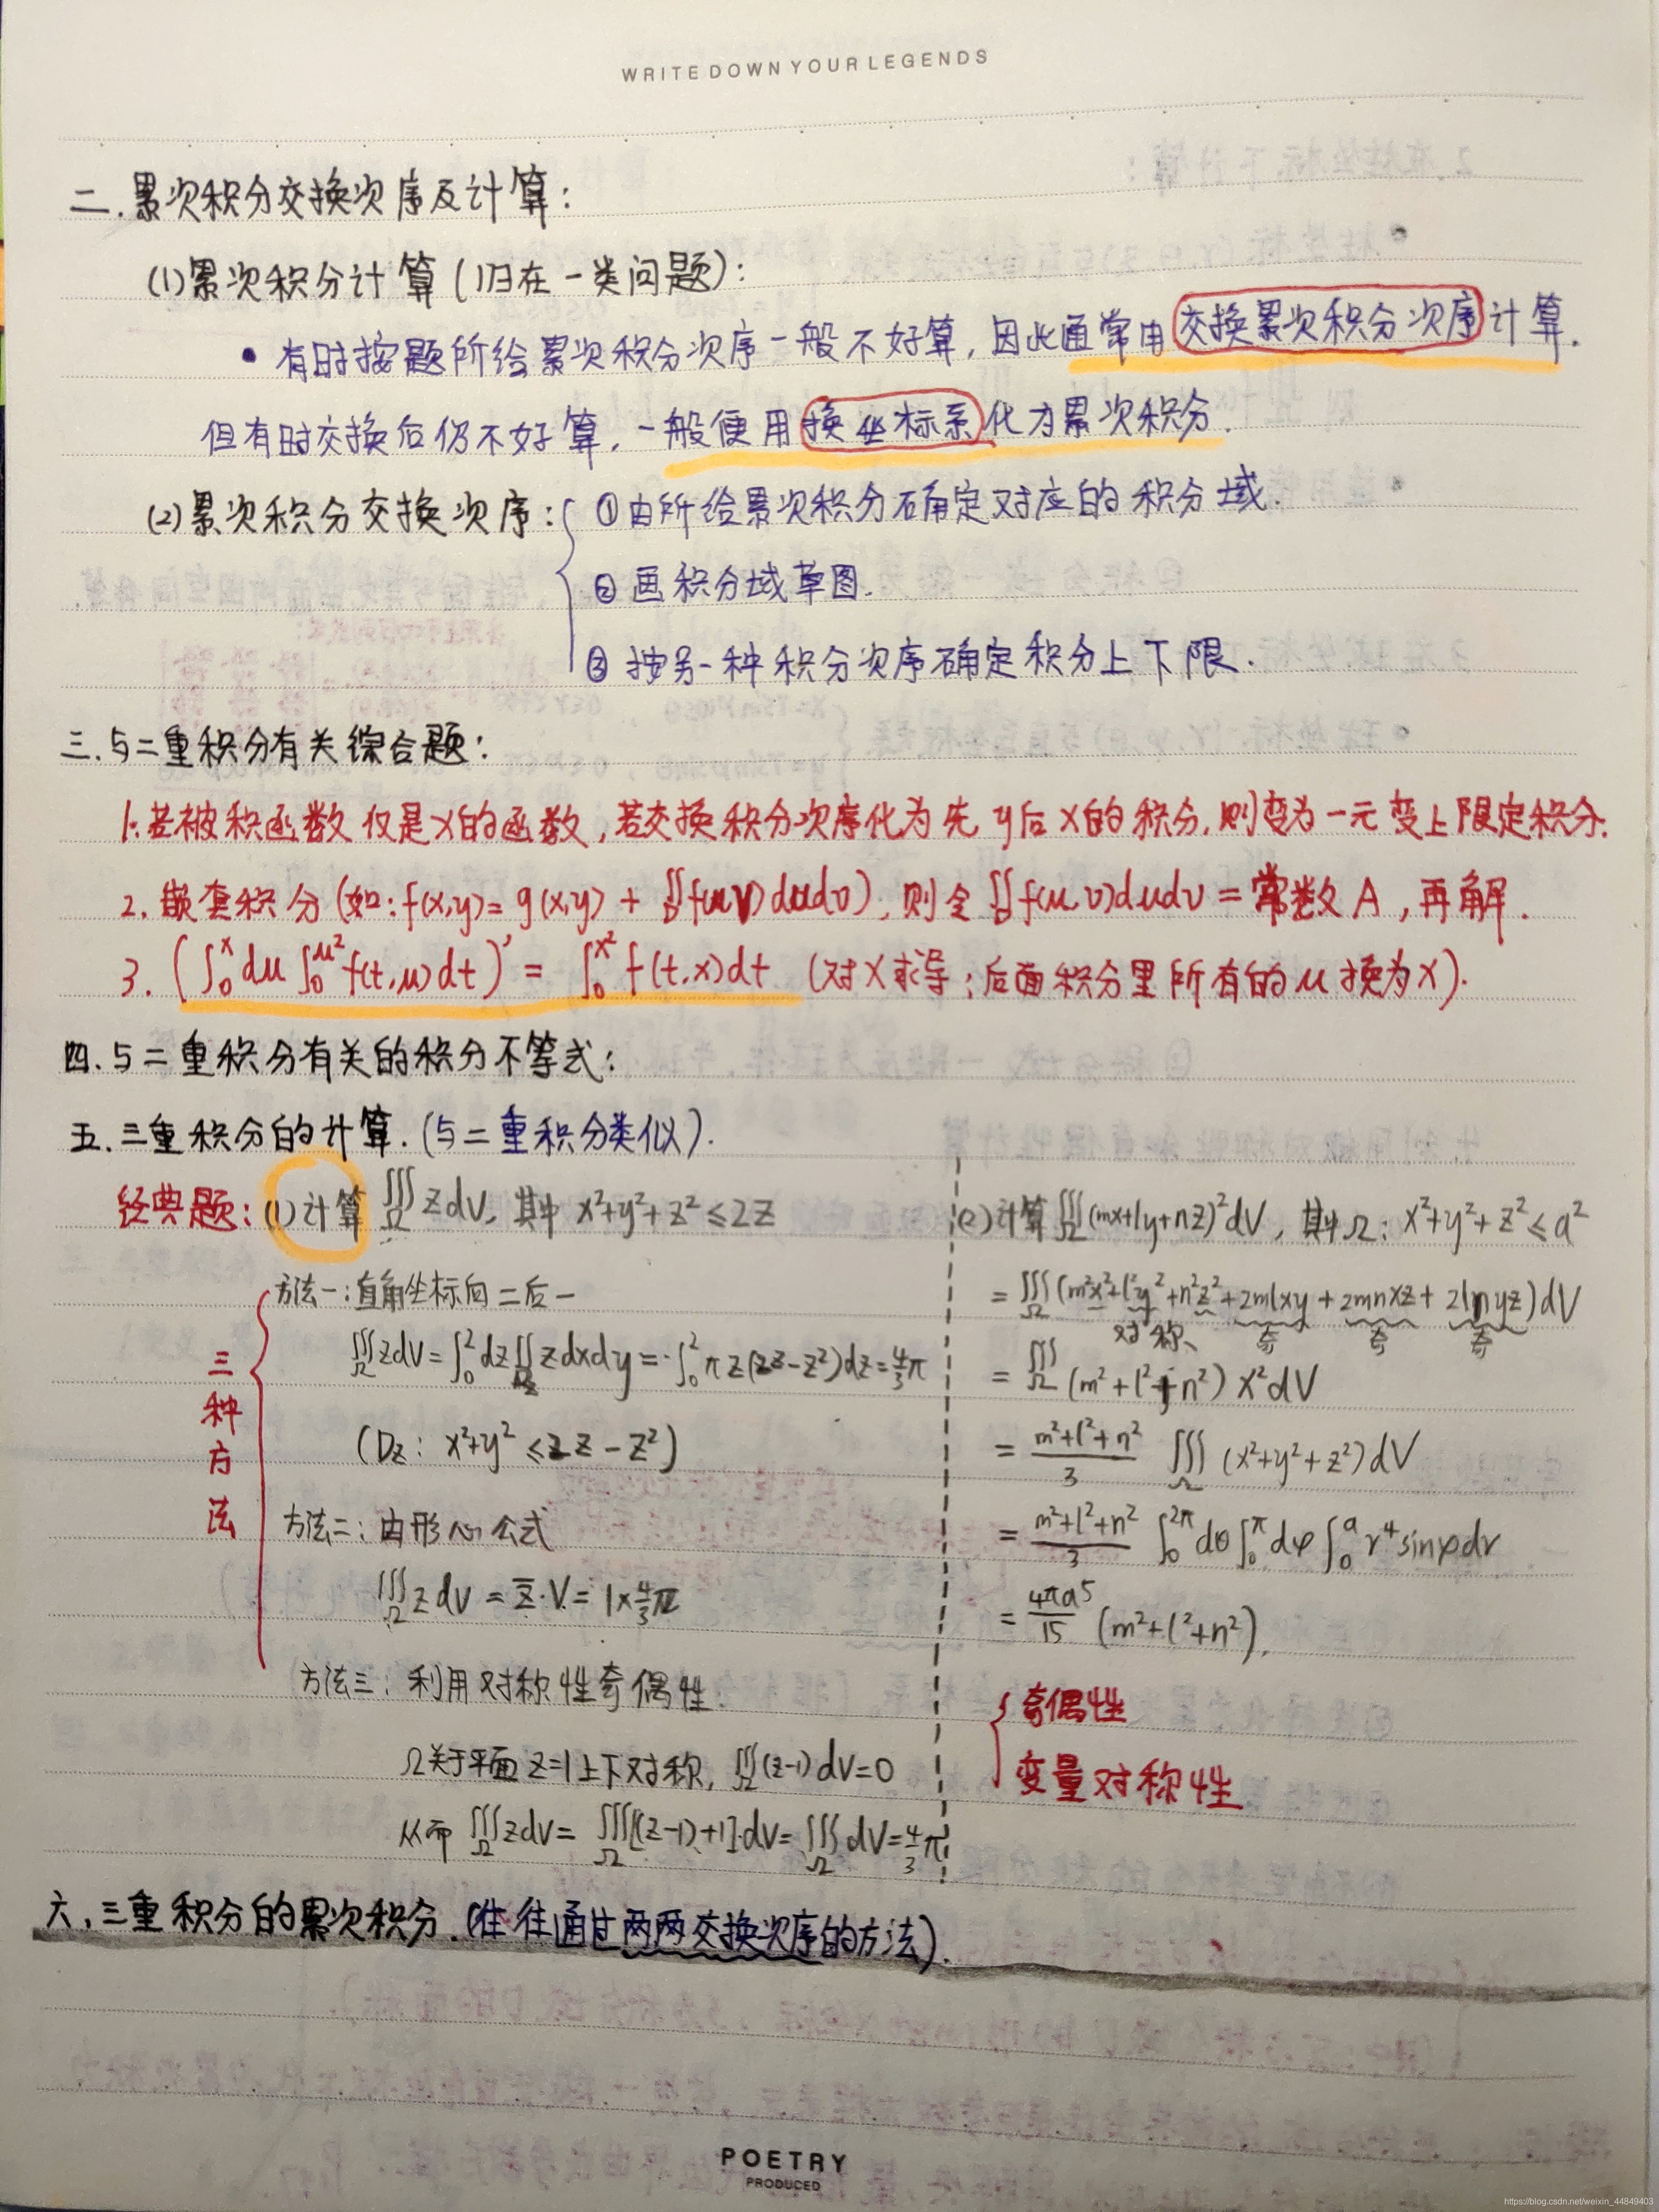 WRITE DOWN YOUR LEGENDS
二.累次积分交换次序及计算:
(1)累次积分计算(归在一类问题):
• 有时按题所给累次积分次序一般不好算,因此通常用交换累次积分次序计算.
但有时交换后仍不好算,一般便用换坐标系化为累次积分.
(2)累次积分交换次序: ①由所给累次积分确定对应的积分域.
② 画积分域草图.
③ 按另一种积分次序确定积分上下限.
三.与二重积分有关综合题:
1.若被积函数仅是x的函数,若交换积分次序化为先y后x的积分,则变为一元变上限定积分.
2. 嵌套积分(如:f(x,y)=g(x,y)+∬_D f(u,v)dudv),则令∬_D f(u,v)dudv=常数A,再解.
3. (∫₀ˣdu∫₀^{u²}f(t,u)dt)′=∫₀^{x²}f(t,x)dt (对x求导;后面积分里所有的u换为x).
四.与二重积分有关的积分不等式:
五.三重积分的计算.(与二重积分类似).
经典题:(1)计算∭_Ω zdV,其中 x²+y²+z²≤2z
三种方法
方法一:直角坐标向二后一
∭_Ω zdV=∫₀²dz∬_{Dz}zdxdy=∫₀²πz(2z-z²)dz=4/3π
(Dz: x²+y²≤2z-z²)
方法二:由形心公式
∭_Ω zdV=z̄·V=1×4/3π
方法三:利用对称性奇偶性.
Ω关于平面z=1上下对称,∭_Ω(z-1)dV=0
从而∭_Ω zdV=∭_Ω[(z-1)+1]dV=∭_Ω dV=4/3π
(2)计算∭_Ω(mx+ly+nz)²dV,其中Ω:x²+y²+z²≤a²
=∭_Ω(m²x²+l²y²+n²z²+2mlxy+2mnxz+2lnyz)dV
对称 奇 奇 奇
=∭_Ω(m²+l²+n²)x²dV
=(m²+l²+n²)/3 ∭_Ω(x²+y²+z²)dV
=(m²+l²+n²)/3 ∫₀^{2π}dθ∫₀^π dφ∫₀^a r⁴sinφdr
=4πa⁵/15 (m²+l²+n²).
奇偶性
变量对称性
六.三重积分的累次积分.(往往通过两两交换次序的方法).
POETRY
PRODUCED
https://blog.csdn.net/weixin_44849403